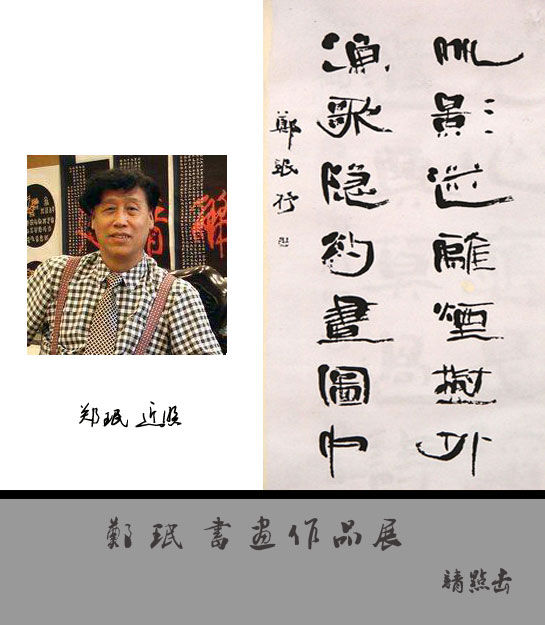 帆影迷離煙樹外
漁歌隐約畫圖中
鄭珉
郑珉 近照
鄭珉書畫作品展
請點击